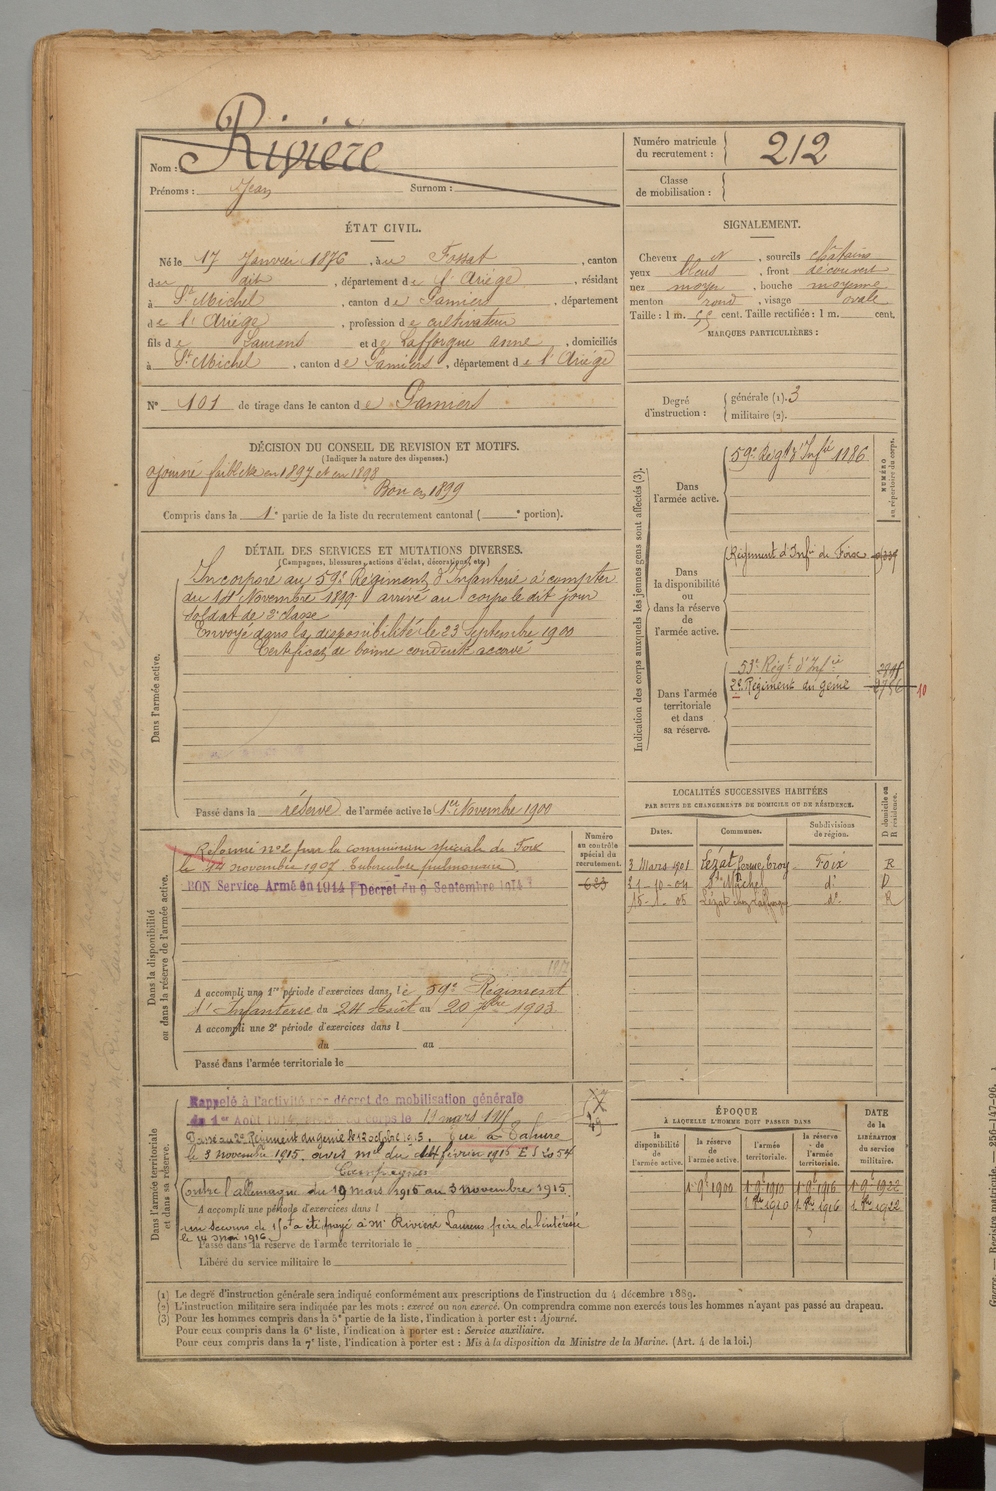 Nom : Rivière
Prénoms : Jean Surnom :
Numéro matricule du recrutement : 212
Classe de mobilisation :
ÉTAT CIVIL.
Né le 17 Janvier 1876, à u Fossat, canton
du dit, département de l'Ariège, résidant
à St Michel, canton de Pamiers, département
de l'Ariège, profession de cultivateur
fils de Laurens et de Lafforgue anne, domiciliés
à St Michel, canton de Pamiers, département de l'Ariège
N° 101 de tirage dans le canton de Pamiers
SIGNALEMENT.
Cheveux N, sourcils chatains
yeux bleus, front découvert
nez moyen, bouche moyenne
menton rond, visage ovale
Taille : 1 m. 55 cent. Taille rectifiée : 1 m. cent.
MARQUES PARTICULIÈRES :
Degré d'instruction : générale (1). 3
militaire (2).
DÉCISION DU CONSEIL DE REVISION ET MOTIFS.
(Indiquer la nature des dispenses.)
ajourné faiblesse en 1897 et en 1898
Bon en 1899
Compris dans la 1e partie de la liste du recrutement cantonal ( e portion).
DÉTAIL DES SERVICES ET MUTATIONS DIVERSES.
(Campagnes, blessures, actions d'éclat, décorations, etc.)
Dans l'armée active.
Incorporé au 59e Régiment d'Infanterie à compter
du 14 Novembre 1899. arrivé au corps le dit jour
soldat de 2e classe
Envoyé dans la disponibilité le 23 Septembre 1900
Certificat de bonne conduite accordé
Passé dans la réserve de l'armée active le 1er Novembre 1900
Indication des corps auxquels les jeunes gens sont affectés (3).
NUMÉRO au répertoire du corps.
Dans l'armée active.
59e Régt d'Infie 1186
Dans la disponibilité ou dans la réserve de l'armée active.
Régiment d'Infie de Foix
Dans l'armée territoriale et dans sa réserve.
53e Régt d'Infie
2e Régiment du génie
10
LOCALITÉS SUCCESSIVES HABITÉES
PAR SUITE DE CHANGEMENTS DE DOMICILE OU DE RÉSIDENCE.
Dates. Communes. Subdivisions de région. D domicile ou R résidence.
3 Mars 1901 Lézat Foix R
21-10-04 St Michel do D
15-1-05 Lézat chez Lafforgue do R
Dans la disponibilité ou dans la réserve de l'armée active.
Numéro au contrôle spécial du recrutement.
623
Réformé no 2 par la commission spéciale de Foix
le 14 novembre 1907 Tuberculose pulmonaire
BON Service Armé en 1914 Décret du 9 Septembre 1914
A accompli une 1re période d'exercices dans le 59e Régiment
d'Infanterie du 24 Août au 20 7bre 1903
A accompli une 2e période d'exercices dans l
du au
Passé dans l'armée territoriale le
Dans l'armée territoriale et dans sa réserve.
Rappelé à l'activité par décret de mobilisation générale
du 1er Août 1914 corps le 19 mars 1915
Passé au 2e Régiment du génie le 12 octobre 1915. Tué à Tahure
le 3 novembre 1915 avis mel du 14 février 1916 E S 2054
Campagnes
Contre l'allemagne du 19 mars 1915 au 3 novembre 1915
A accompli une période d'exercices dans l
un secours de 150f a été payé à Mr Rivière Laurens frère de l'intéressé
le 14 mai 1916
Passé dans la réserve de l'armée territoriale le
Libéré du service militaire le
ÉPOQUE
À LAQUELLE L'HOMME DOIT PASSER DANS
la disponibilité de l'armée active. la réserve de l'armée active. l'armée territoriale. la réserve de l'armée territoriale.
DATE de la LIBÉRATION du service militaire.
1 9e 1900 1 9e 1910 1 9e 1916 1 9e 1922
1 8e 1910 1 8e 1916 1 8e 1922
(1) Le degré d'instruction générale sera indiqué conformément aux prescriptions de l'instruction du 4 décembre 1889.
(2) L'instruction militaire sera indiquée par les mots : exercé ou non exercé. On comprendra comme non exercés tous les hommes n'ayant pas passé au drapeau.
(3) Pour les hommes compris dans la 5e partie de la liste, l'indication à porter est : Ajourné.
Pour ceux compris dans la 6e liste, l'indication à porter est : Service auxiliaire.
Pour ceux compris dans la 7e liste, l'indication à porter est : Mis à la disposition du Ministre de la Marine. (Art. 4 de la loi.)